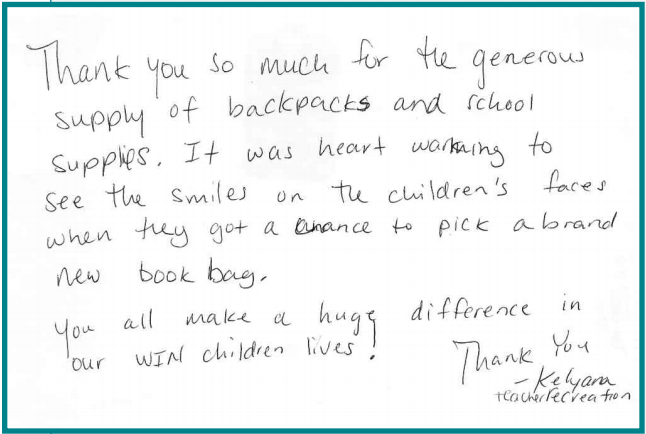 Thank you so much for the generous
supply of backpacks and school
supplies. It was heart warming to
see the smiles on the children's faces
when they got a chance to pick a brand
new book bag.
You all make a huge difference in
our WIN children lives!
Thank You
- Kelyana
teacher recreation